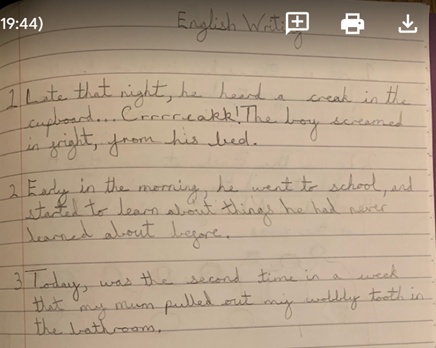 19:44)
English Writing
1 Late that night, he heard a creak in the
cupboard... Crrrrreakk! The boy screamed
in fright, from his bed.
2 Early in the morning, he went to school, and
started to learn about things he had never
learned about before.
3 Today, was the second time in a week
that my mum pulled out my wobbly tooth in
the bathroom.